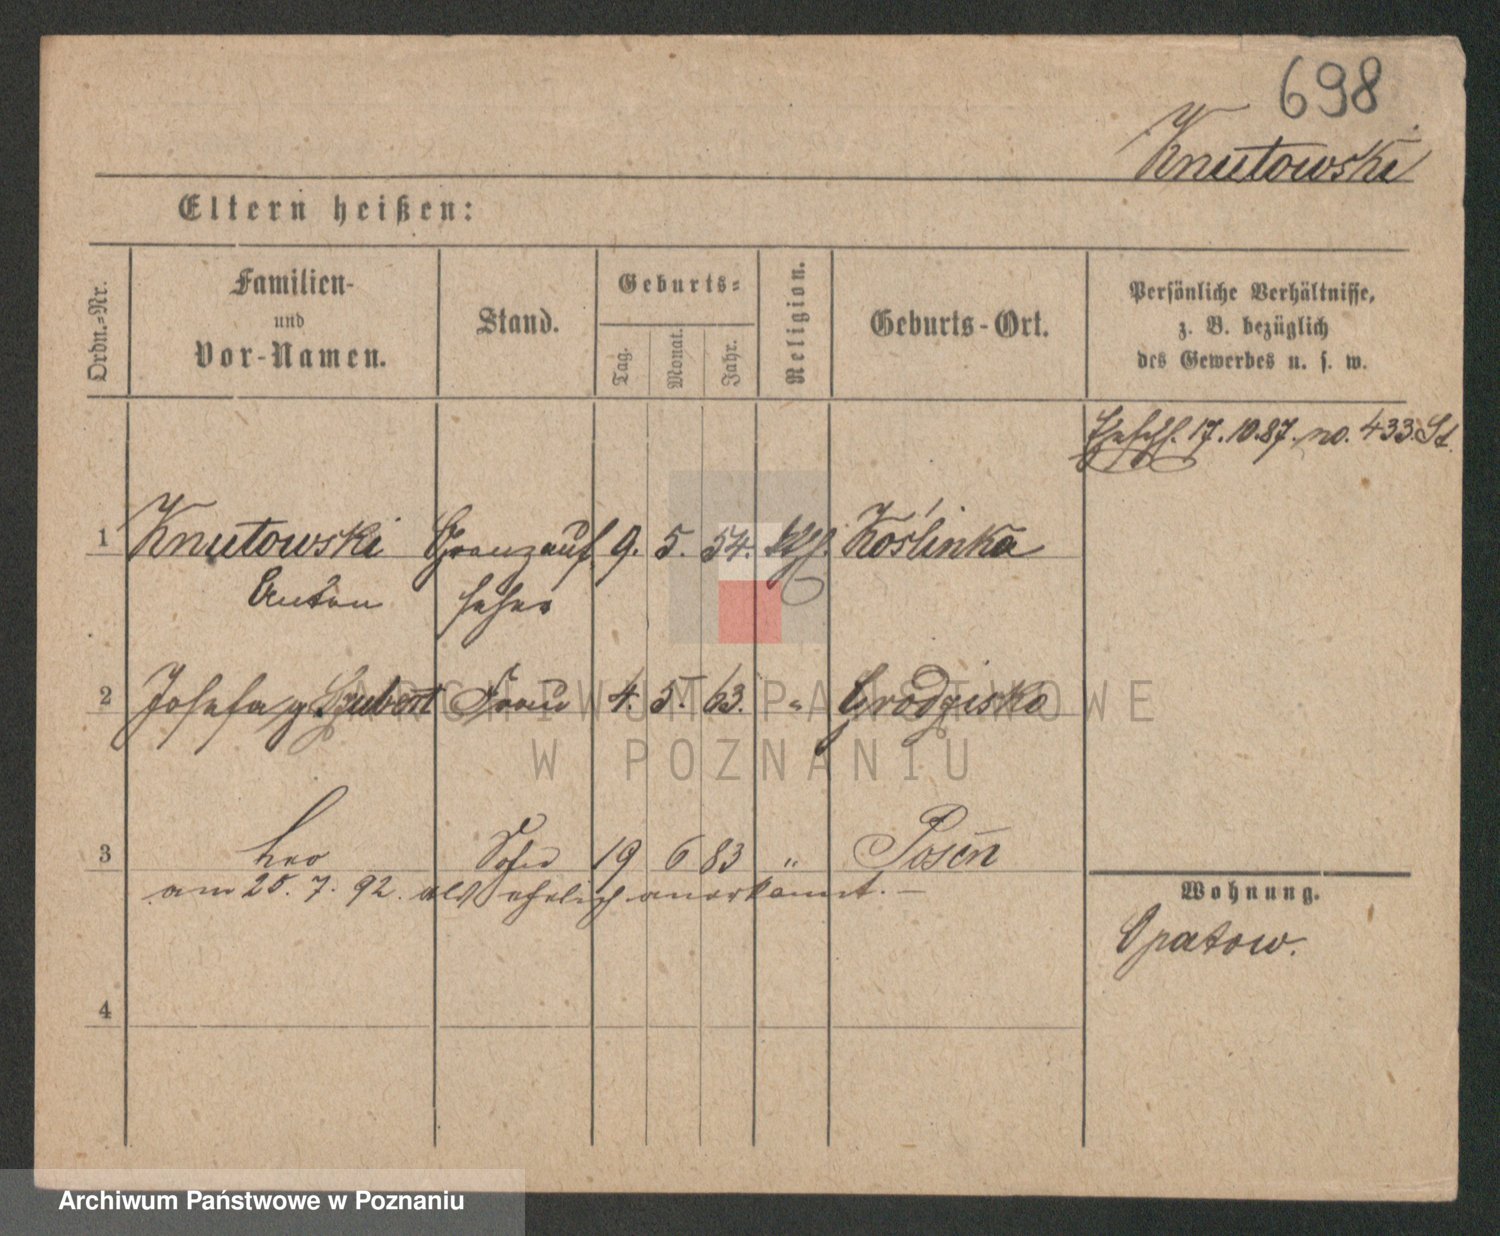 698
Knutowski
Eltern heißen:
Ordn.-Nr.
Familien-
und
Vor-Namen.
Stand.
Geburts-
Tag.
Monat.
Jahr.
Religion.
Geburts-Ort.
Persönliche Verhältnisse,
z. B. bezüglich
des Gewerbes u. s. w.
17.10.87. no. 433. St.
1 Knutowski Grenzauf 9. 5. 54. kth. Koślinka
Anton seher
2 Josefa g. Szubert Frau 4. 5. 63. " Grodzisko
3 Leo Sohn 19 6 83 " Posen
am 25. 7. 92. als ehelich anerkannt. —
Wohnung.
Opatow.
4
ARCHIWUM PAŃSTWOWE
W POZNANIU
Archiwum Państwowe w Poznaniu